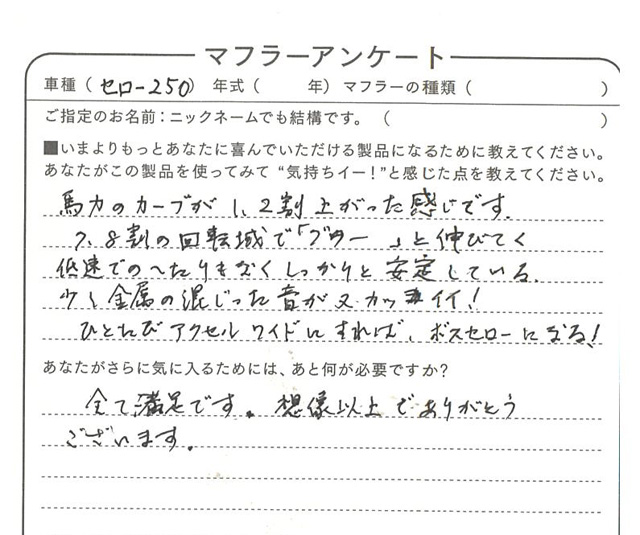 マフラーアンケート
車種（ セロー250） 年式（　　年）マフラーの種類（　　　）
ご指定のお名前：ニックネームでも結構です。（　　　）
■いまよりもっとあなたに喜んでいただける製品になるために教えてください。
あなたがこの製品を使ってみて“気持ちイー！”と感じた点を教えてください。
馬力のカーブが1、2割上がった感じです。
7、8割の回転域で「ブゥー 」と伸びてく
低速でのへたりもなくしっかりと安定している。
少し金属の混じった音が又カッ イイ！
ひとたびアクセルワイドにすれば、ボスセローになる！
あなたがさらに気に入るためには、あと何が必要ですか？
全て満足です。想像以上でありがとう
ございます。